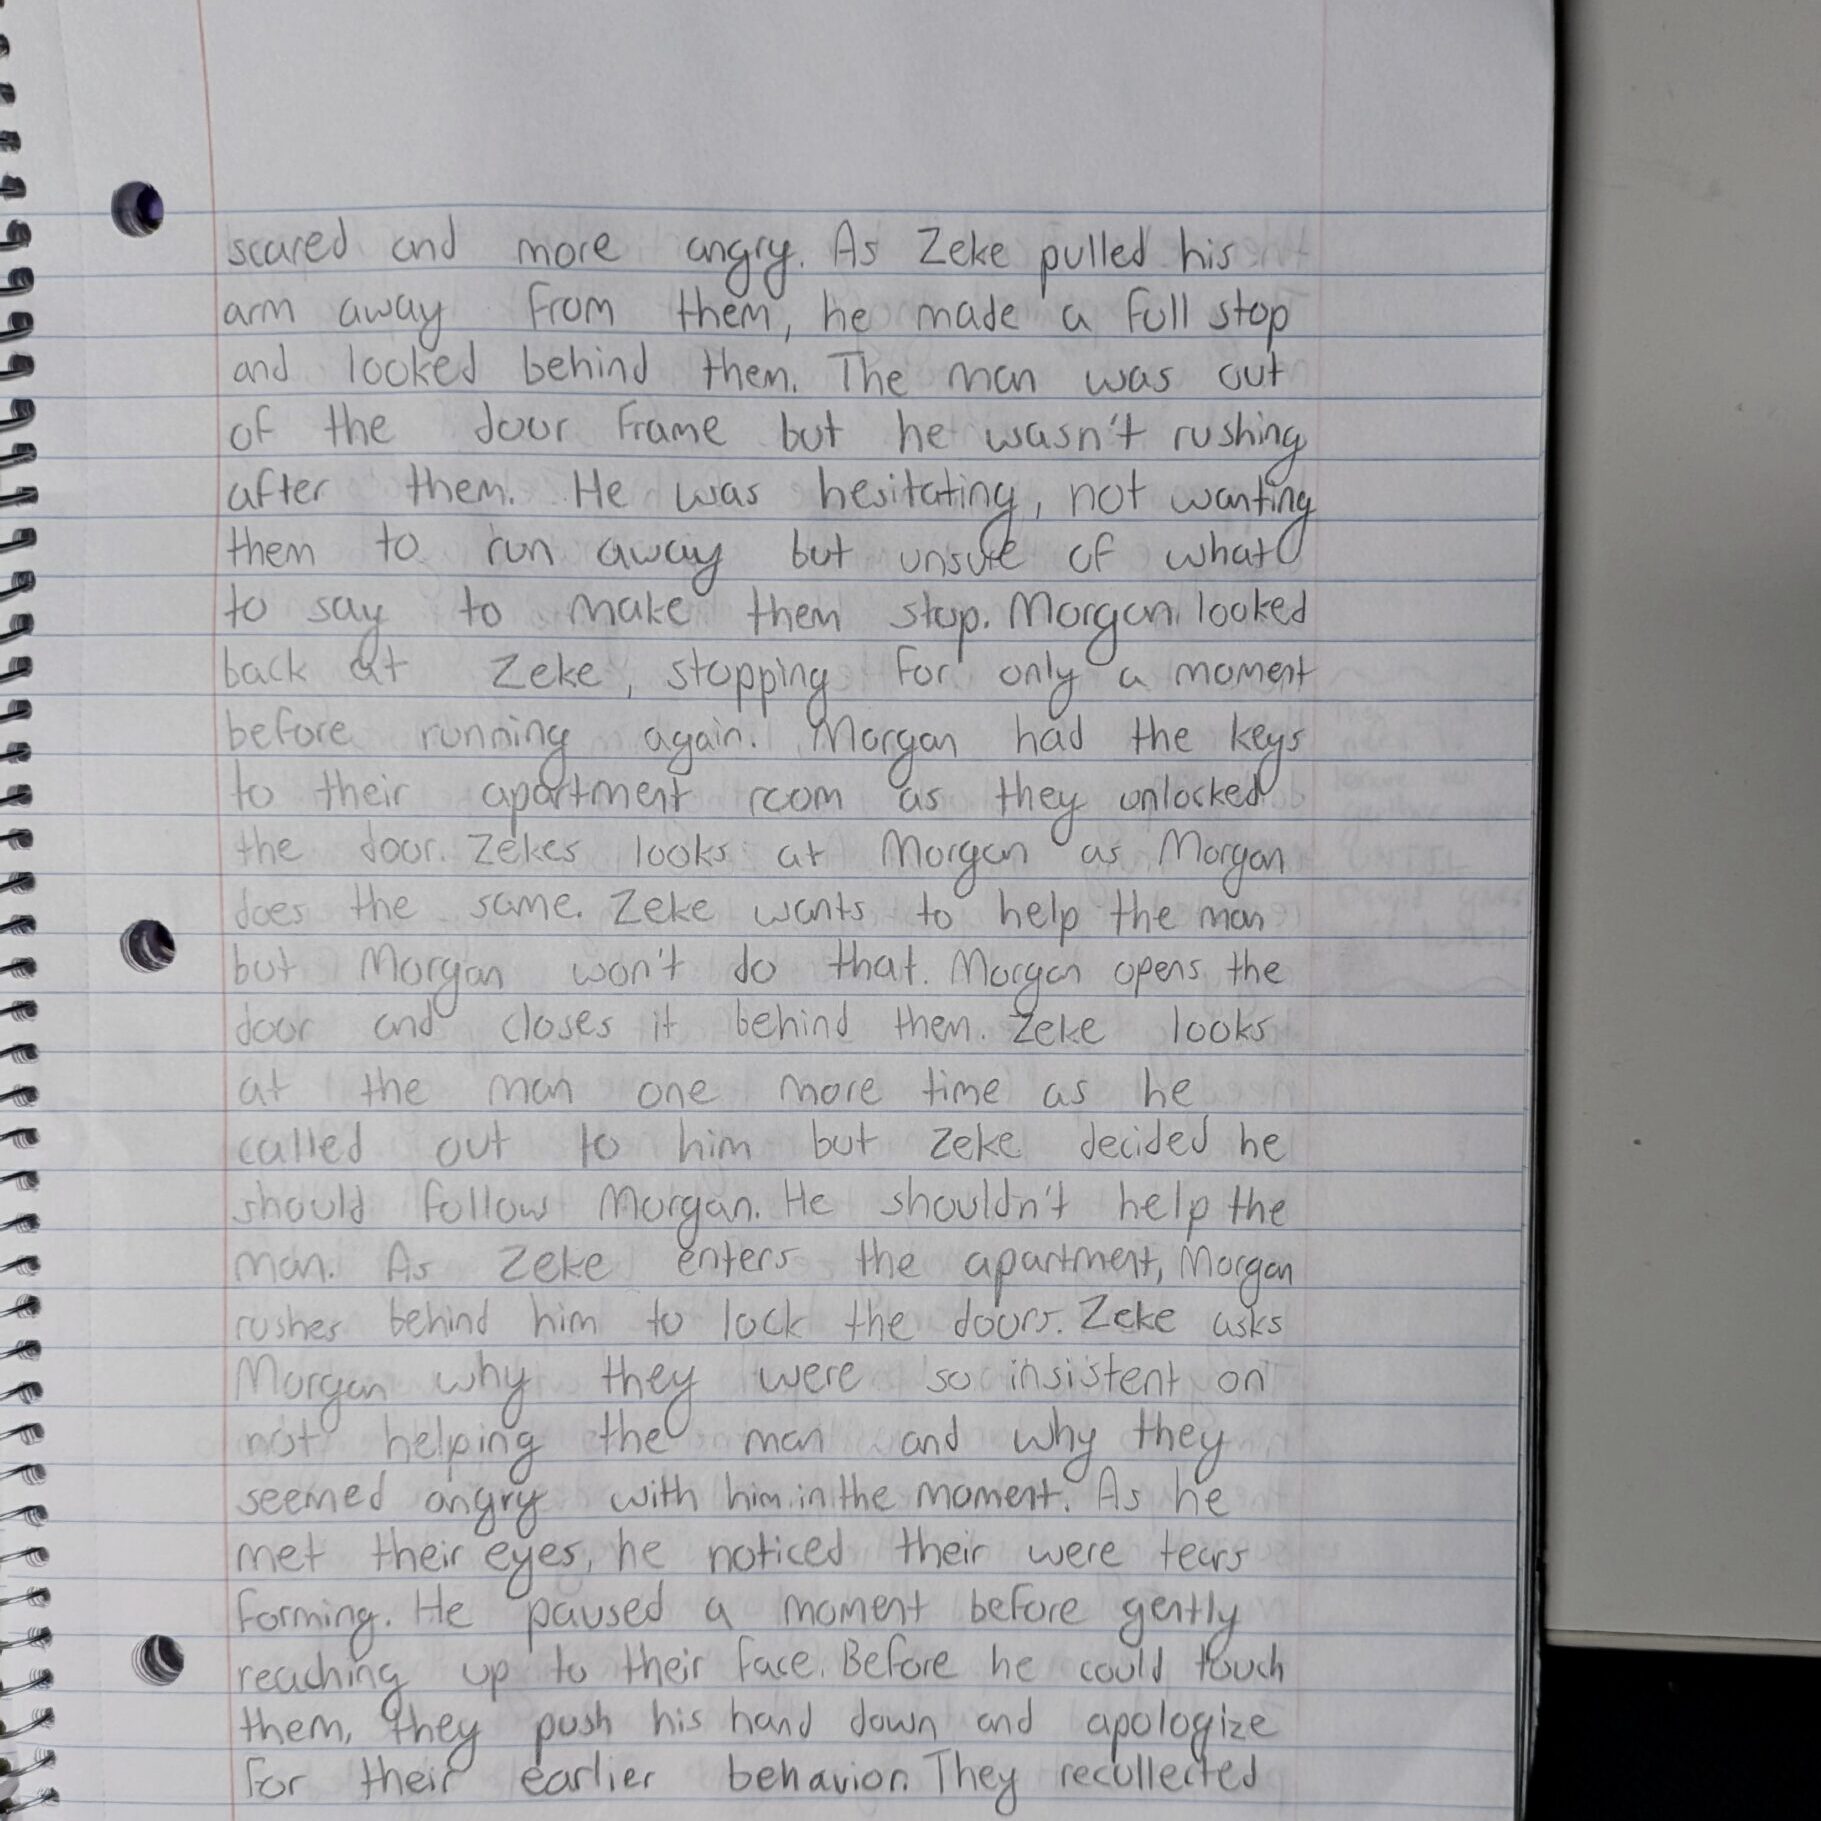 scared and more angry. As Zeke pulled his
arm away from them, he made a full stop
and looked behind them. The man was out
of the door frame but he wasn't rushing
after them. He was hesitating, not wanting
them to run away but unsure of what
to say to make them stop. Morgan looked
back at Zeke, stopping for only a moment
before running again. Morgan had the keys
to their apartment room as they unlocked
the door. Zekes looks at Morgan as Morgan
does the same. Zeke wants to help the man
but Morgan won't do that. Morgan opens the
door and closes it behind them. Zeke looks
at the man one more time as he
called out to him but Zeke decided he
should follow Morgan. He shouldn't help the
man. As Zeke enters the apartment, Morgan
rushes behind him to lock the doors. Zeke asks
Morgan why they were so insistent on
not helping the man and why they
seemed angry with him in the moment. As he
met their eyes, he noticed their were tears
forming. He paused a moment before gently
reaching up to their face. Before he could touch
them, they push his hand down and apologize
for their earlier behavior. They recollected